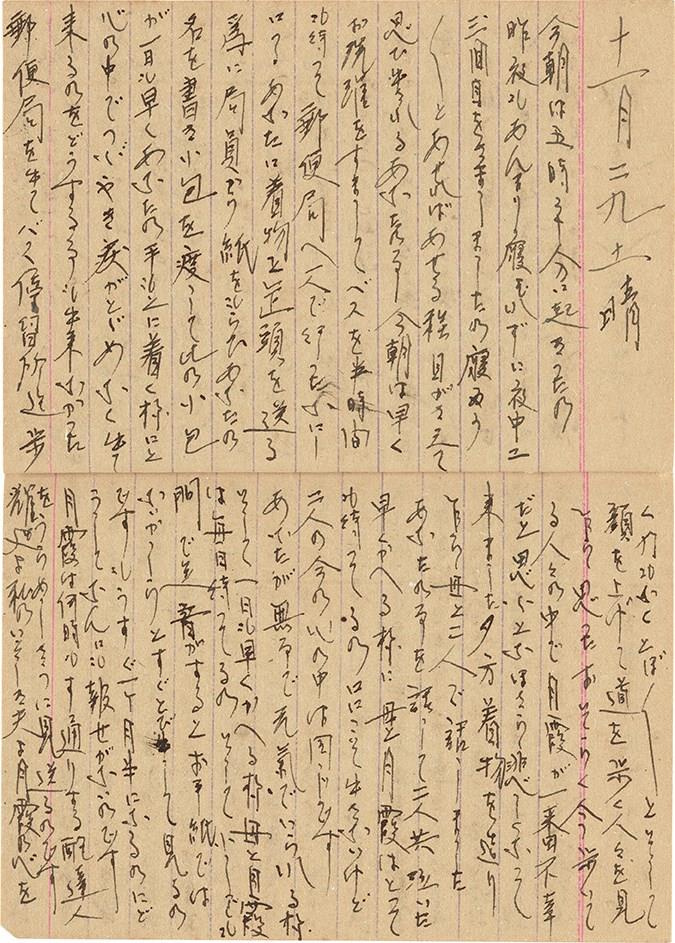 十一月二九 土 晴
今朝は五時半分に起きたの
昨夜もあんまり寝もれずに夜中二
三回目をさましましたの 寝ようと
あせればあせる程目がさえて
思ひ出されるあなたの事 今朝は早く
お洗濯をすまして バスを半時間
も待って郵便局へ一人で行ったなにし
ろあなたに着物を送る
為に局員から紙をもらひあなたの
名を書き小包を渡して此の小包
が一日も早くあなたの手もとに着く様にと
心の中でつぶやき涙がとどめなく出て
来るのをどうする事も出来なかった
郵便局を出てバス停留所迄歩
くのもなくとぼ〳〵として
顔を上げて道を歩く人々を見
て思った 今歩いて
る人々の中で月霞が一番不幸
だと思ふとなほさら悲しくなって
来ました夕方着物を造り
ながら母と二人で話しました
あなたの事を話して二人共泣いた
早くかへる様に母と月霞はとって
も待ってるの口にこそ出さないけど
二人の今の心の中は同じです
あなたが無事で元気でいられる様
そして一日も早くかへる様母と月霞
は毎日待ってるの そして
門で音がするとお手紙では
ないかしらとすぐとび出して見るの
ですもうすぐ一ケ月半になるのにど
うしてなんにも報せがないのです
月霞は何時も通りする配達人
をうらめしさうに見送るのです
私のいとしき夫よ月霞の心を